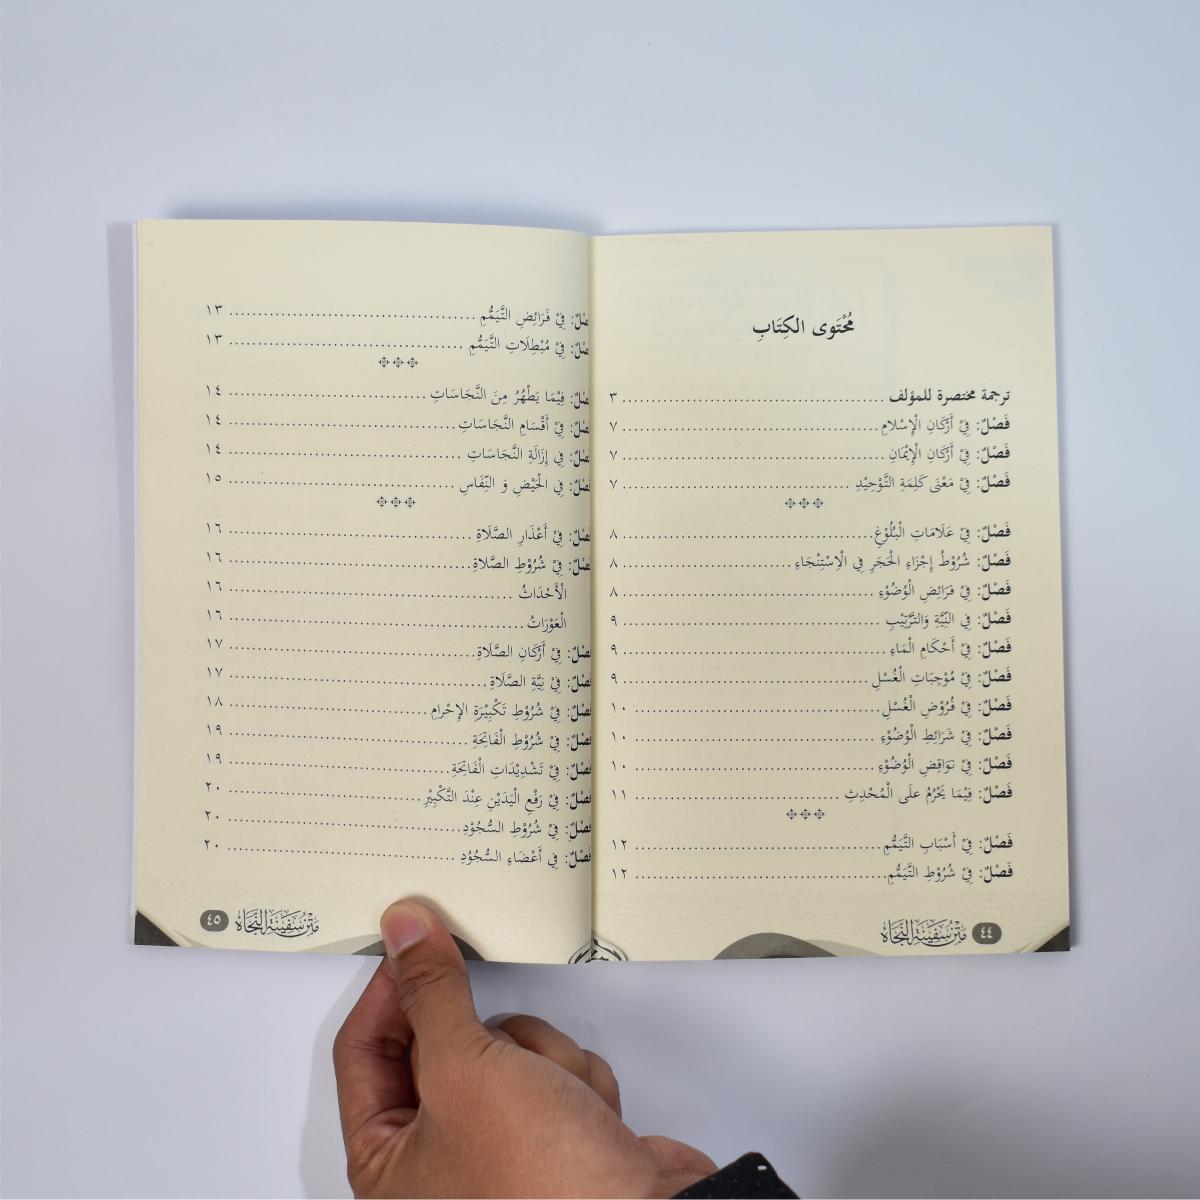 مُحْتَوى الكِتَابِ
ترجمة مختصرة للمؤلف ........ ٣
فَصْلٌ: فِيْ أَرْكَانِ الْإِسْلَامِ ........ ٧
فَصْلٌ: فِيْ أَرْكَانِ الْإِيْمَانِ ........ ٧
فَصْلٌ: فِيْ مَعْنَى كَلِمَةِ التَّوْحِيْدِ ........ ٧
فَصْلٌ: فِيْ عَلَامَاتِ الْبُلُوْغِ ........ ٨
فَصْلٌ: شُرُوْطُ إِجْزَاءِ الْحَجَرِ فِي الْاِسْتِنْجَاءِ ........ ٨
فَصْلٌ: فِيْ فَرَائِضِ الْوُضُوْءِ ........ ٨
فَصْلٌ: فِي النِّيَّةِ وَالتَّرْتِيْبِ ........ ٩
فَصْلٌ: فِيْ أَحْكَامِ الْمَاءِ ........ ٩
فَصْلٌ: فِيْ مُوْجِبَاتِ الْغُسْلِ ........ ٩
فَصْلٌ: فِيْ فُرُوْضِ الْغُسْلِ ........ ١٠
فَصْلٌ: فِيْ شَرَائِطِ الْوُضُوْءِ ........ ١٠
فَصْلٌ: فِيْ نَوَاقِضِ الْوُضُوْءِ ........ ١٠
فَصْلٌ: فِيْمَا يَحْرُمُ علَى الْمُحْدِثِ ........ ١١
فَصْلٌ: فِيْ أَسْبَابِ التَّيَمُّمِ ........ ١٢
فَصْلٌ: فِيْ شُرُوْطِ التَّيَمُّمِ ........ ١٢
٤٤ مَتْنُ سَفِيْنَةِ النَّجَاهْ
فَصْلٌ: فِيْ فَرَائِضِ التَّيَمُّمِ ........ ١٣
فَصْلٌ: فِيْ مُبْطِلَاتِ التَّيَمُّمِ ........ ١٣
فَصْلٌ: فِيْمَا يَطْهُرُ مِنَ النَّجَاسَاتِ ........ ١٤
فَصْلٌ: فِيْ أَقْسَامِ النَّجَاسَاتِ ........ ١٤
فَصْلٌ: فِي إِزَالَةِ النَّجَاسَاتِ ........ ١٤
فَصْلٌ: فِي الْحَيْضِ وَ النِّفَاسِ ........ ١٥
فَصْلٌ: فِيْ أَعْذَارِ الصَّلَاةِ ........ ١٦
فَصْلٌ: فِيْ شُرُوْطِ الصَّلَاةِ ........ ١٦
الْأَحْدَاثُ ........ ١٦
الْعَوْرَاتُ ........ ١٦
فَصْلٌ: فِيْ أَرْكَانِ الصَّلَاةِ ........ ١٧
فَصْلٌ: فِيْ نِيَّةِ الصَّلَاةِ ........ ١٧
فَصْلٌ: فِيْ شُرُوْطِ تَكْبِيْرَةِ الإِحْرامِ ........ ١٨
فَصْلٌ: فِيْ شُرُوْطِ الْفَاتِحَةِ ........ ١٩
فَصْلٌ: فِيْ تَشْدِيْدَاتِ الْفَاتِحَةِ ........ ١٩
فَصْلٌ: فِيْ رَفْعِ الْيَدَيْنِ عِنْدَ التَّكْبِيْرِ ........ ٢٠
فَصْلٌ: فِيْ شُرُوْطِ السُّجُوْدِ ........ ٢٠
فَصْلٌ: فِي أَعْضَاءِ السُّجُوْدِ ........ ٢٠
مَتْنُ سَفِيْنَةِ النَّجَاهْ ٤٥